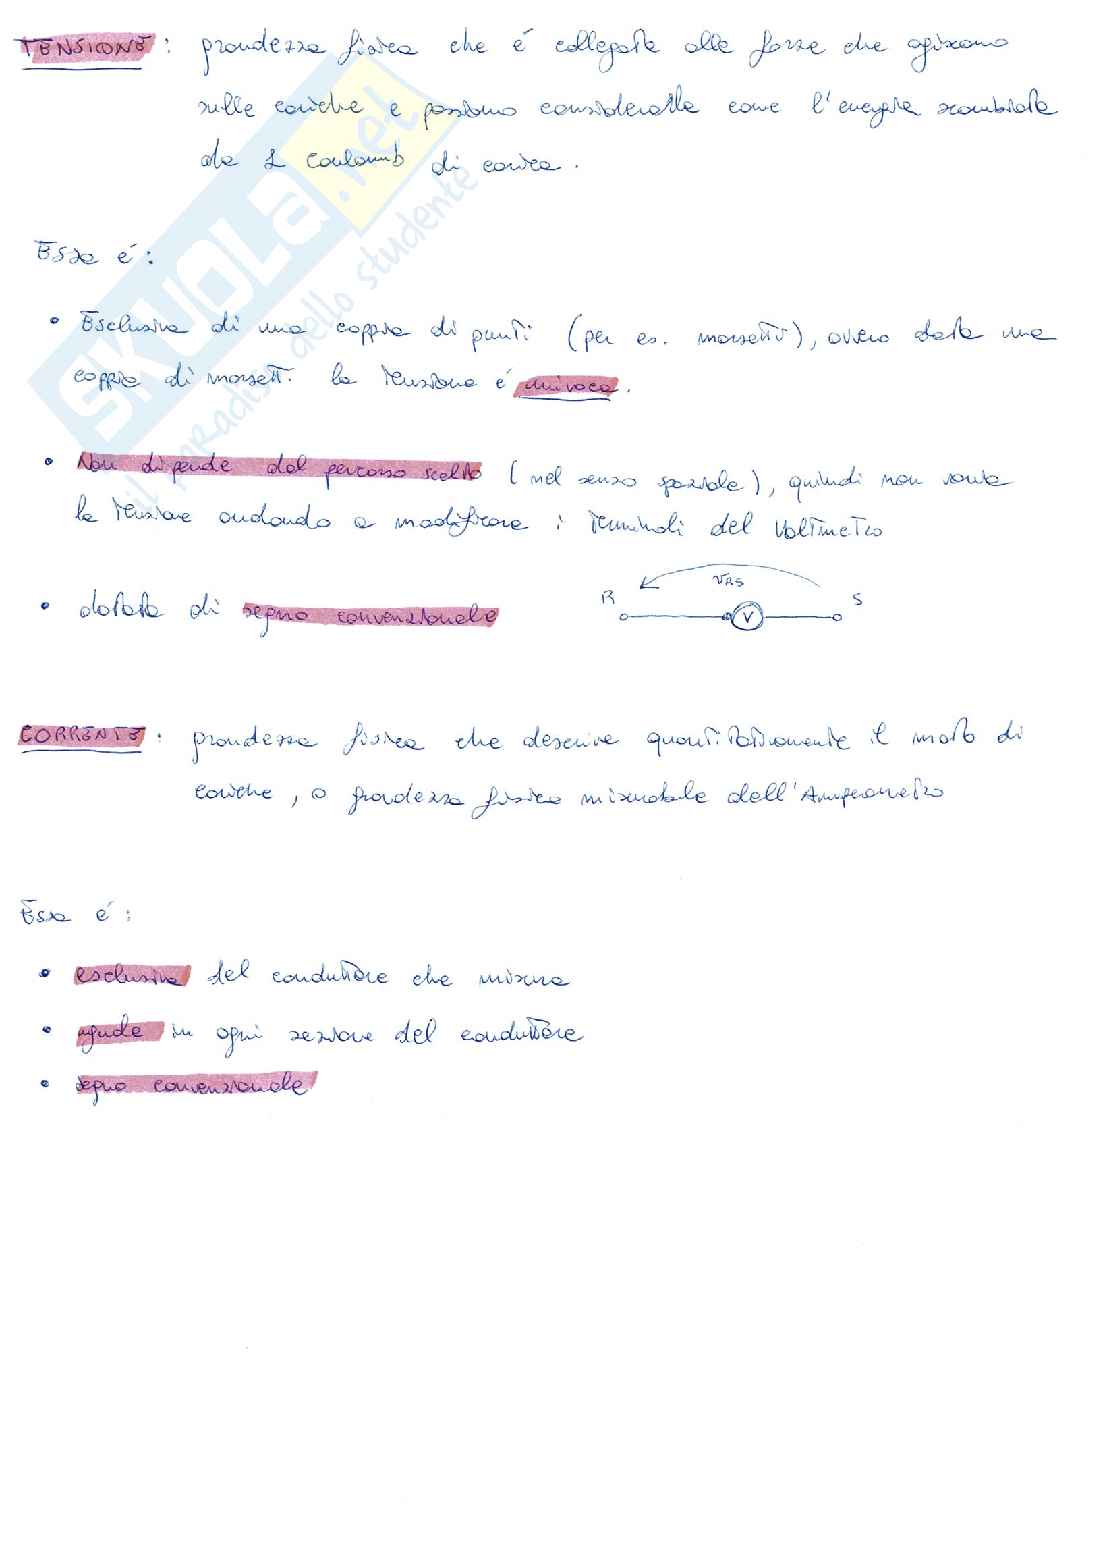 TENSIONE : grandezza fisica che é collegata alle forze che agiscono
sulle cariche e possiamo considerarla come l'energia scambiata
da 1 Coulomb di carica.
Essa é:
• Esclusiva di una coppia di punti (per es. morsetti), ovvero data una
coppia di morsetti la tensione é univoca.
• Non dipende dal percorso scelto (nel senso spaziale), quindi non varia
la tensione andando a modificare i terminali del Voltmetro
• dotata di segno convenzionale
R VRS V S
CORRENTE : grandezza fisica che descrive quantitativamente il moto di
cariche, o grandezza fisica misurabile dall'Amperometro
Essa é:
• esclusiva del conduttore che misura
• uguale in ogni sezione del conduttore
• segno convenzionale
SKUOLA.net
il paradiso dello studente